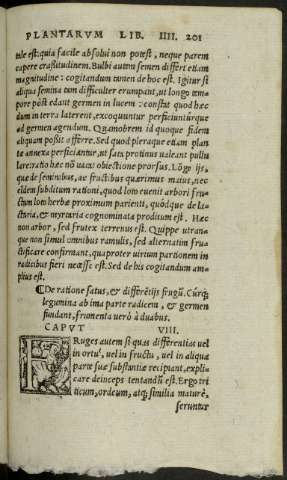 PLANTARVM LIB. IIII. 201
tale est: quia facile absolui non potest, neque parem
capere crassitudinem. Bulbi autem semen differt etiam
magnitudine: cogitandum tamen de hoc est. Igitur si
aliqua semina tum difficulter erumpant, ut longo tem-
pore pòst edant germen in lucem: constat quod hæc
dum in terra laterent, excoquuntur perficiunturque
ad germen agendum. Quamobrem id quoque fidem
aliquam possit afferre. Sed quod pleraque etiam plan
tæ annexa perficiantur, ut satis protinus ualeant pullu
lare: rata hæc nõ uacet obiectione prorsus. Lõge ijs,
que de seminibus, ac fructibus quærimus maius, nec
eidem subditum rationi, quod loto euenit arbori fru-
ctum loto herbæ proximum parienti, quódque de la-
ctaria, et myrtaria cognominata proditum est. Hæc
non arbor, sed frutex terrenus est. Quippe utran-
que non simul omnibus ramulis, sed alternatim fru-
ctificare confirmant, quapropter uirtutum partionem in
radicibus fieri necesse est. Sed de his cogitandum am-
plius est.
¶De ratione satus, et differẽtijs frugũ. Cúrq;
legumina ab ima parte radicem, et germen
fundant, frumenta uerò à duabus.
CAPVT VIII.
FRuges autem si quas differentias uel
in ortu, uel in fructu, uel in aliqua
parte suæ substantiæ recipiant, expli-
care deinceps tentandũ est. Ergo tri
ticum, ordeum, atq; similia maturè,
seruntur